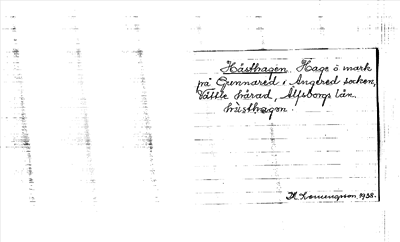 Hästhagen. Hage å mark
på Gunnared i Angered socken,
Vättle härad, Älfsborgs län.
hästhagen.
1938.